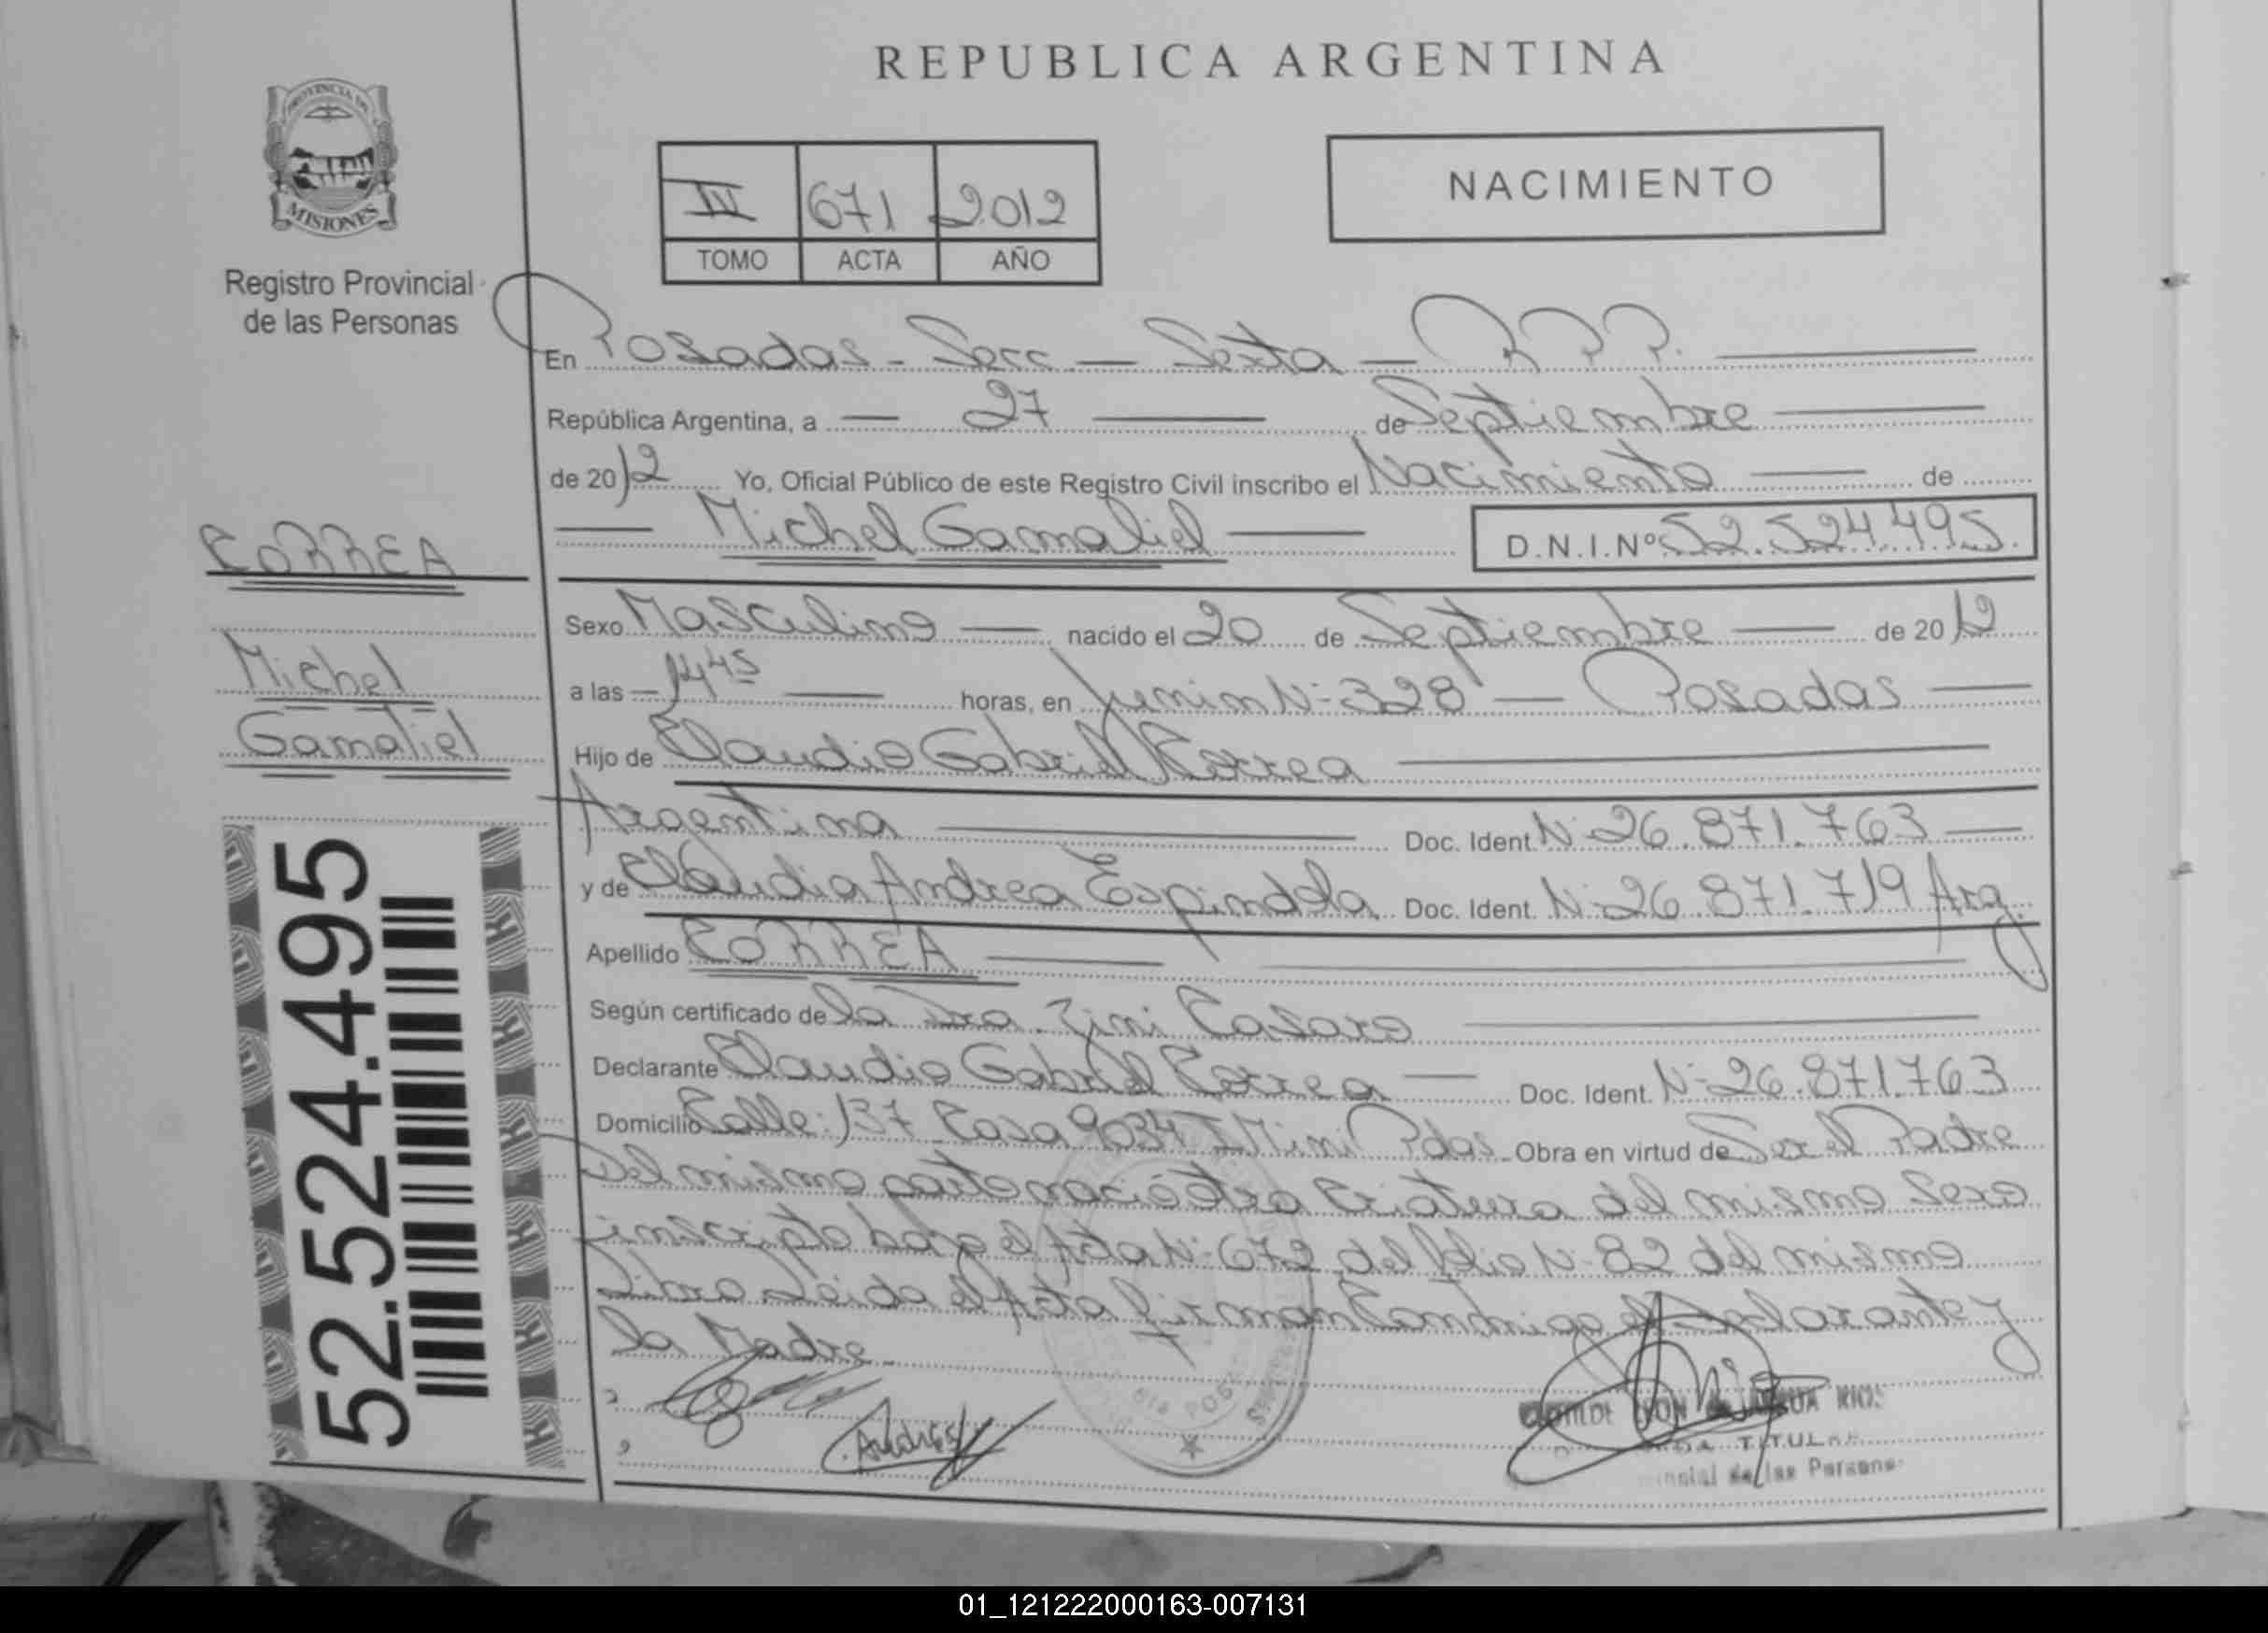 REPUBLICA ARGENTINA
PROVINCIA DE
MISIONES
Registro Provincial
de las Personas
III 671 2012
TOMO ACTA AÑO
NACIMIENTO
En Posadas - Secc. - Sexta - R.P.P.
República Argentina, a 27 de Septiembre
de 2012 Yo, Oficial Público de este Registro Civil inscribo el Nacimiento de
Michel Gamaliel D.N.I.Nº 52.524.495
CORREA
Michel
Gamaliel
Sexo Masculino nacido el 20 de Septiembre de 2012
a las 14,45 horas, en Junin Nº 328 - Posadas
Hijo de Claudio Gabriel Correa
Argentina Doc. Ident. Nº 26.871.763
y de Claudia Andrea Espindola Doc. Ident. Nº 26.871.719 Arg.
Apellido CORREA
Según certificado de la Dra. Zini Casaro
Declarante Claudio Gabriel Correa Doc. Ident. Nº 26.871.763
Domicilio Calle: 137 Casa 9034 Pdas. Obra en virtud de Ser el Padre
Del mismo parto nació otra Criatura del mismo Sexo
inscripto bajo el Acta Nº 672 del folio Nº 82 del mismo
Libro Leida el Acta firman Conmigo el declarante y
la Madre
52.524.495
TITULAR
de las Personas
01_121222000163-007131